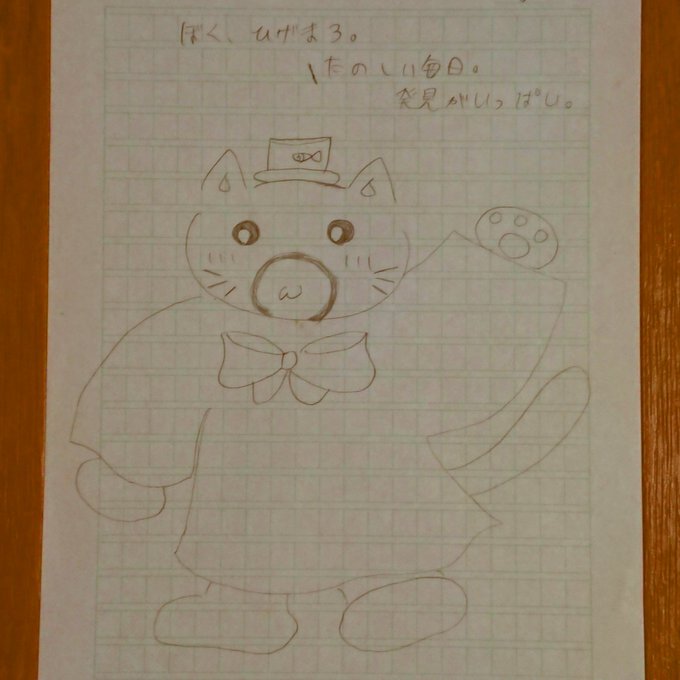 ぼく、ひげまろ。
たのしい毎日。
発見がいっぱい。
ω